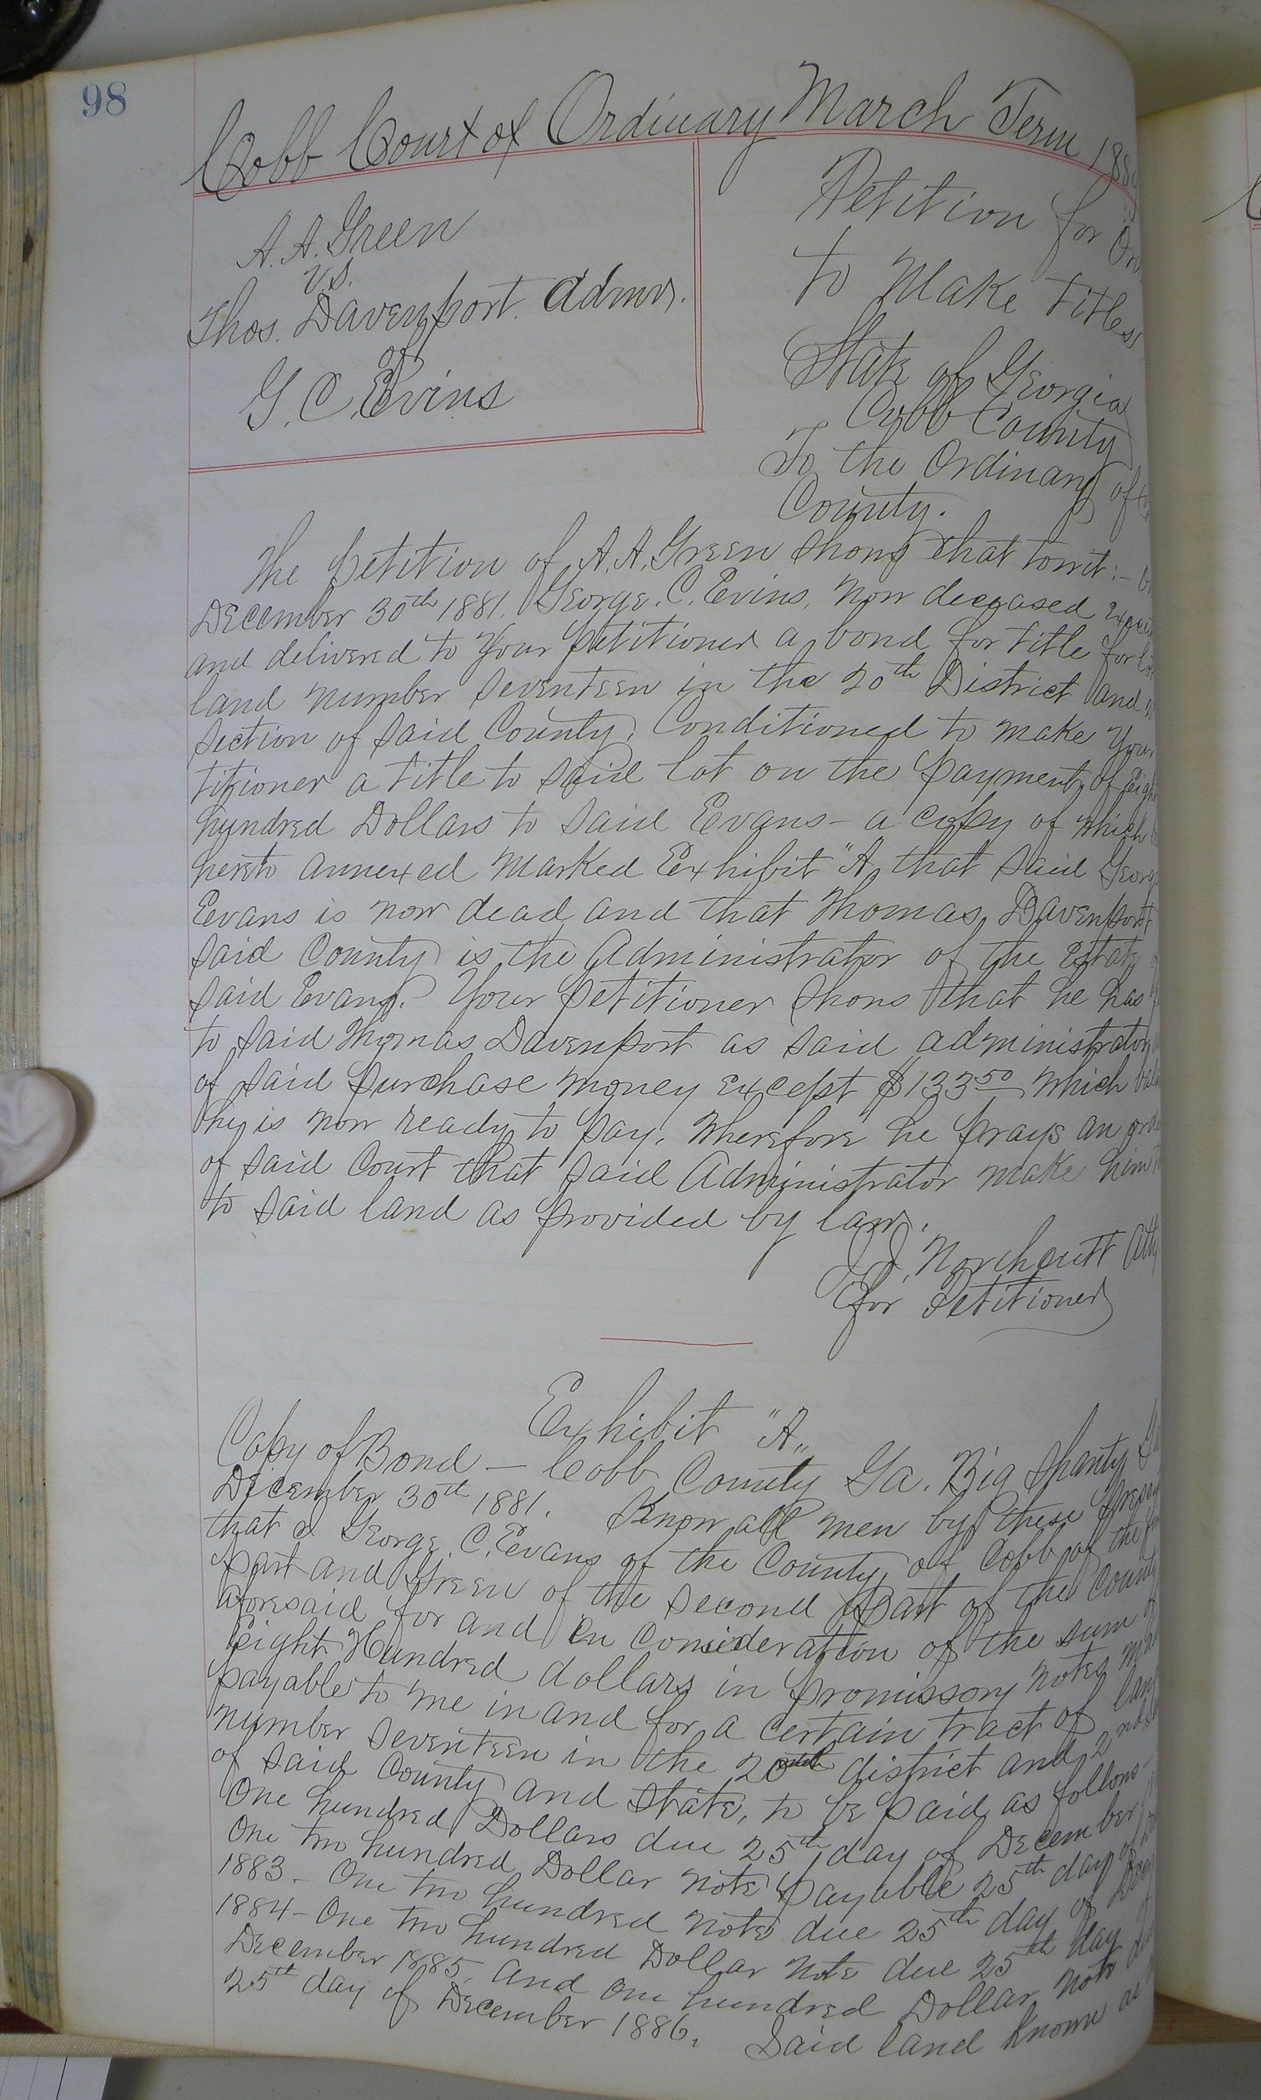 98
Cobb Court of Ordinary March Term 188
A. A. Green
vs.
Thos. Davenport. Admr.
of
G. C. Evins
Petition for
to Make Titles
State of Georgia
Cobb County
To the Ordinary of
County.
The petition of A. A. Green shows that towit:-
December 30th 1881. George. C. Evins. now deceased
and delivered to your petitioner a bond for title for
land number seventeen in the 20th District and
section of said County. Conditioned to make your
titioner a title to said lot on the payment of Eigh
hundred Dollars to said Evans- a copy of which
hereto annexed marked Exhibit "A, that said Georg
Evans is now dead and that Thomas Davenport
said County is the Administrator of the Estate
said Evans. Your petitioner shows that he has
to said Thomas Davenport as said administrator
of said purchase money except $133 50 which bal
he is now ready to pay. Wherefore he prays an orde
of said Court that said Administrator make him
to said land as provided by law.
J. J. Northcutt Atty
for Petitioner
Exhibit "A"
Copy of Bond — Cobb County Ga. Big Shanty
December 30th 1881. Know all men by these
that I George. C. Evans of the County of Cobb of the
part and Green of the second Part of the County
aforesaid for and in consideration of the sum
Eight Hundred dollars in promissory notes
payable to me in and for a certain tract of
number seventeen in the 20th district and 2nd
of said County and State, to be paid as follows
One hundred Dollars due 25th day of December
One two hundred Dollar note payable 25th day
1883- One two hundred note due 25th day of
1884- One two hundred Dollar note due 25th day
December 1885. and one hundred Dollar note
25th day of December 1886. Said land known as